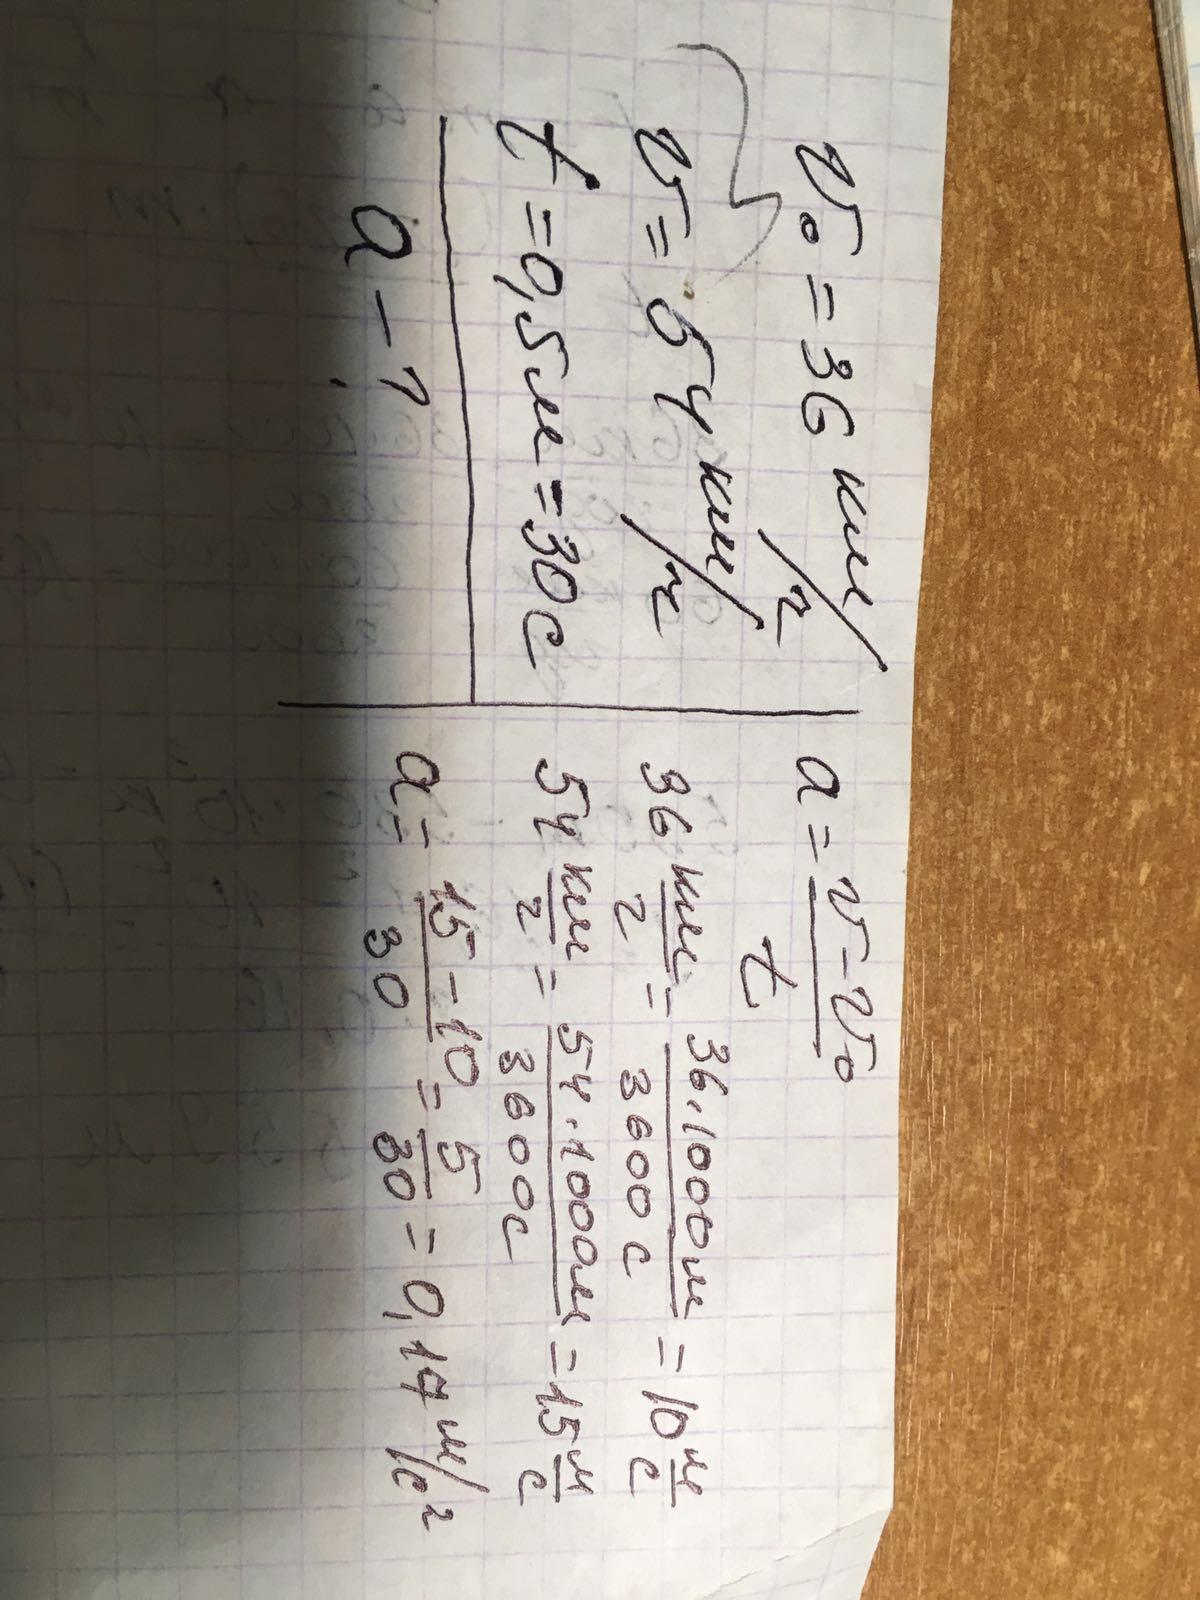 v₀ = 36 км/ч
v = 54 км/ч
t = 0,5 м = 30 с
a - ?
a = (v - v₀)/t
36 км/ч = 36·1000 м/3600 с = 10 м/с
54 км/ч = 54·1000 м/3600 с = 15 м/с
a = (15 - 10)/30 = 5/30 = 0,17 м/с²